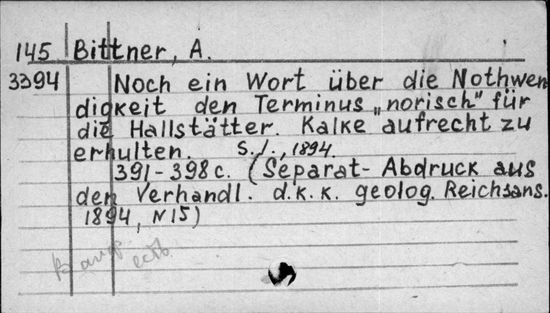 145 Bittner, A.
3394 Noch ein Wort über die Nothwen
digkeit den Terminus „norisch" für
die Hallstätter. Kalke aufrecht zu
erhulten. S.l., 1894.
391-398 c. (Separat- Abdruck aus
den Verhandl. d.k.k. geolog. Reichsans.
1894, N 15)